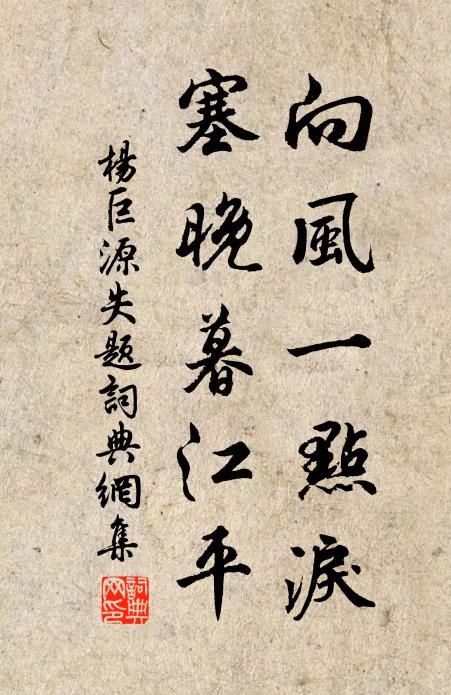 向風一點淚
塞晚暮江平
楊巨源失題詞典網集